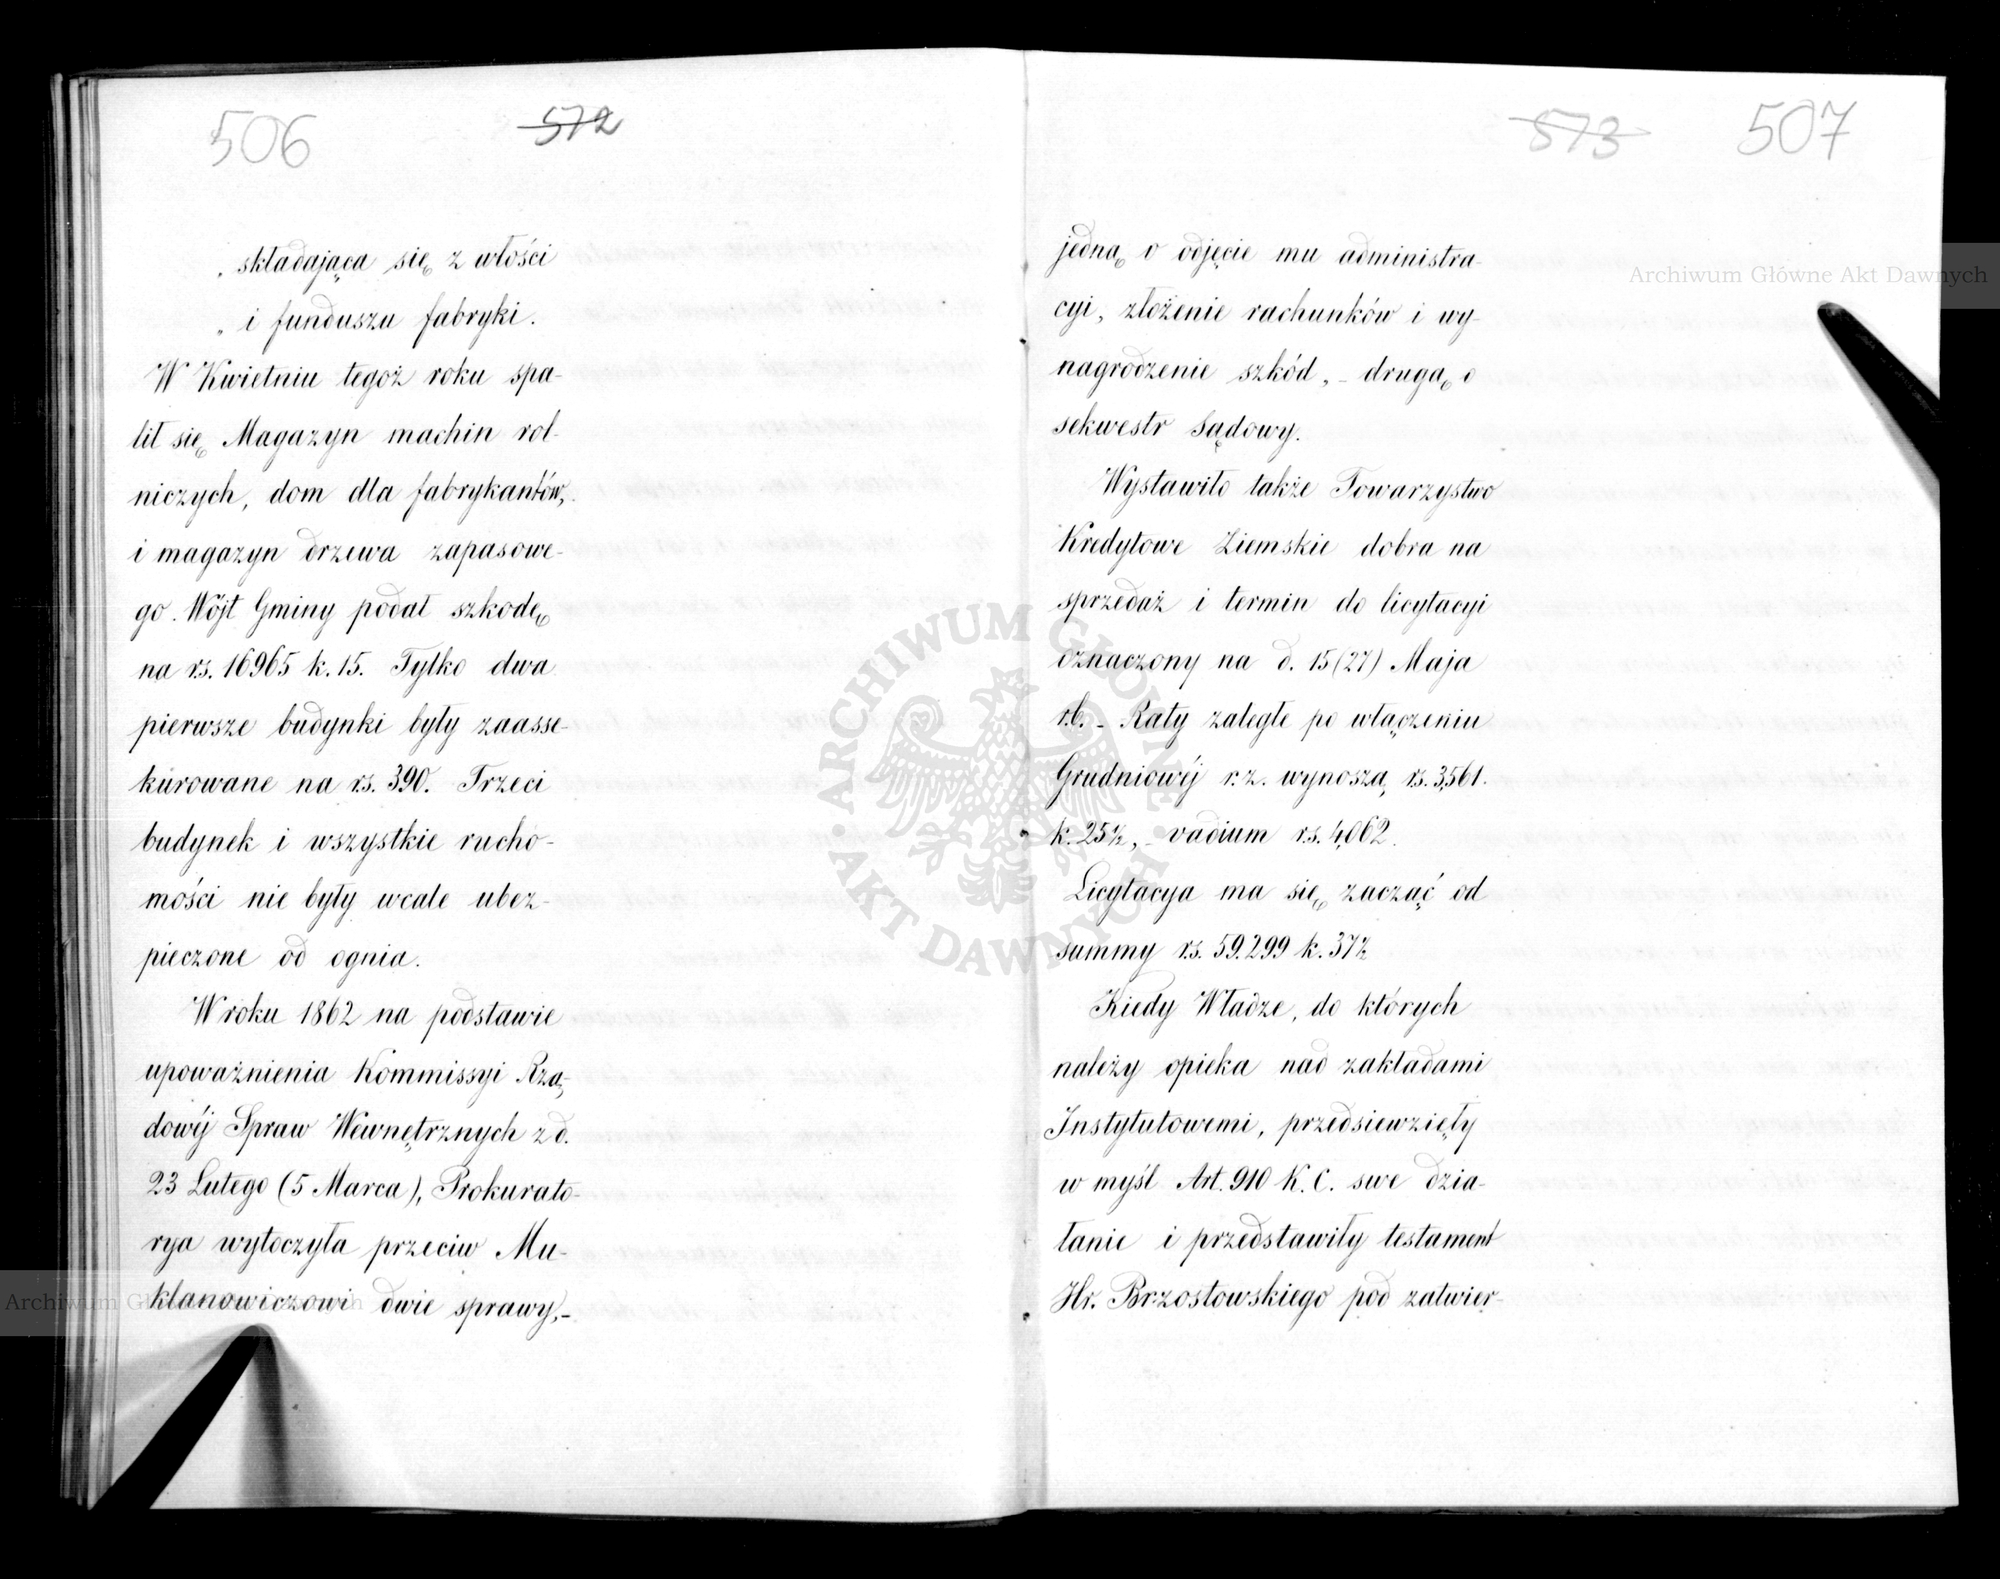 506 572
„ składająca się z włości
„ i funduszu fabryki.
W Kwietniu tegoż roku spa-
lił się Magazyn machin rol-
niczych, dom dla fabrykantów,
i magazyn drzewa zapasowe-
go. Wójt Gminy podał szkodę
na rs. 16965 k. 15. Tylko dwa
pierwsze budynki były zaasse-
kurowane na rs. 390. Trzeci
budynek i wszystkie rucho-
mości nie były wcale ubez-
pieczone od ognia.
W roku 1862 na podstawie
upoważnienia Kommissyi Rzą-
dowéj Spraw Wewnętrznych z d.
23 Lutego (5 Marca), Prokurato-
rya wytoczyła przeciw Mu-
klanowiczowi dwie sprawy, -
573 507
jedną o odjęcie mu administra-
cyi, złożenie rachunków i wy-
nagrodzenie szkód, - drugą o
sekwestr Sądowy.
Wystawiło także Towarzystwo
Kredytowe Ziemskie dobra na
sprzedaż i termin do licytacyi
oznaczony na d. 15 (27) Maja
r.b. - Raty zaległe po włączeniu
Grudniowéj r.z. wynoszą rs. 3,561.
k. 25½, - vadium rs. 4,062.
Licytacya ma się zacząć od
summy rs. 59.299 k. 37½
Kiedy Władze, do których
należy opieka nad zakładami
Instytutowemi, przedsiewzięły
w myśl Art. 910 K. C. swe dzia-
łanie i przedstawiły testament
Hr. Brzostowskiego pod zatwier-
Archiwum Główne Akt Dawnych
ARCHIWUM GŁÓWNE
AKT DAWNYCH
Archiwum Główne Akt Dawnych